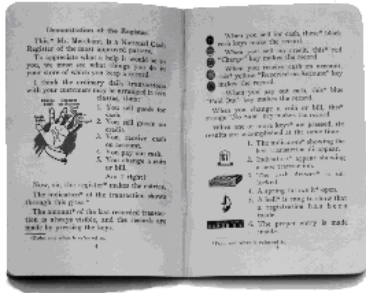 Demonstration of the Register.
This,* Mr. Merchant, is a National Cash
Register of the most improved pattern.
To appreciate what a help it would be to
you, we must see what things you do in
your store of which you keep a record.
I think the ordinary daily transactions
with your customers may be arranged in five
classes, thus:
1. You sell goods for
cash.
2. You sell goods on
credit.
3. You receive cash
on account.
4. You pay out cash.
5. You change a coin
or bill.
Am I right?
Now, sir, this register* makes the entries.
The indication* of the transaction shows
through this glass.*
The amount* of the last recorded transac-
tion is always visible, and the records are
made by pressing the keys.
*Point out what is referred to.
4
When you sell for cash, these* black
keys make the record.
When you sell on credit, this* red
"Charge" key makes the record
When you receive cash on account,
this* yellow "Received on Account" key
makes the record.
When you pay out cash, this* blue
"Paid Out" key makes the record.
When you change a coin or bill, this*
orange "No Sale" key makes the record.
When one of these keys* are pressed, the
results are accomplished at the same time.
1. The indicators* showing the
last transaction disappear.
2. Indicators* appear showing
a new transaction.
3. The cash drawer* is un-
locked.
4. A spring throws it* open.
5. A bell* is rung to show that
a registration has been
made.
6. The proper entry is made
inside.
*Point out what is referred to.